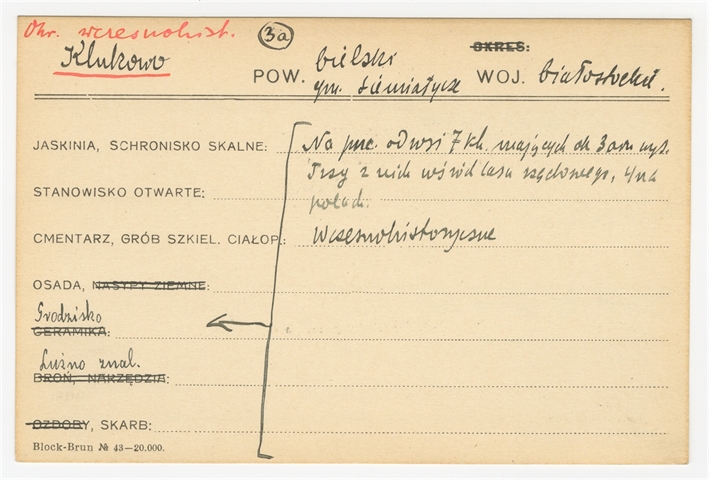 Okr. wczesnohist.
Klukowo
3a
POW. bielski
gm. Siemiatycze
OKRES:
WOJ. białostockie.
JASKINIA, SCHRONISKO SKALNE: Na płc. od wsi 7 kh. mających ok 3 am wys.
Trzy z nich wśród lasu rządowego, 4 na
STANOWISKO OTWARTE:
polach.
CMENTARZ, GRÓB SZKIEL. CIAŁOP.: Wczesnohistoryczne
OSADA, NASYPY ZIEMNE:
Grodzisko
CERAMIKA:
Luźno znal.
BROŃ, NARZĘDZIA:
OZDOBY, SKARB:
Block-Brun № 43—20.000.